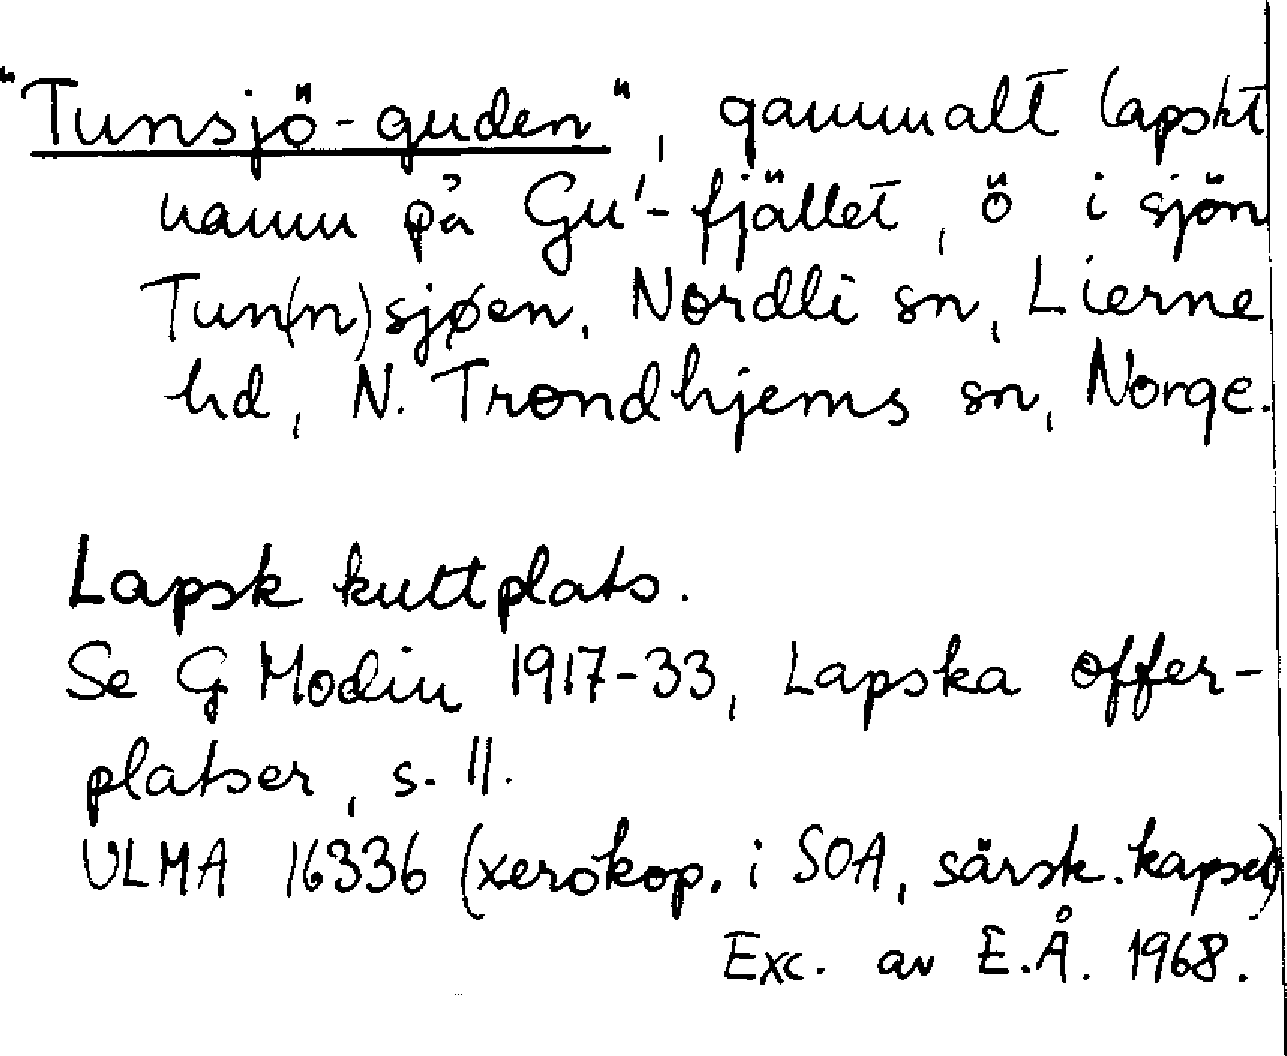 "Tunsjö-guden", gammalt lapskt
namn på Gu'-fjället, ö i sjön
Tun(n)sjøen, Nordli sn, Lierne
hd, N. Trondhjems sn, Norge.
Lapsk kultplats.
Se G Modin 1917-33, Lapska offer-
platser, s. 11.
ULMA 16336 (xerokop. i SOA, särsk. kapsel)
Exc. av E.Å. 1968.